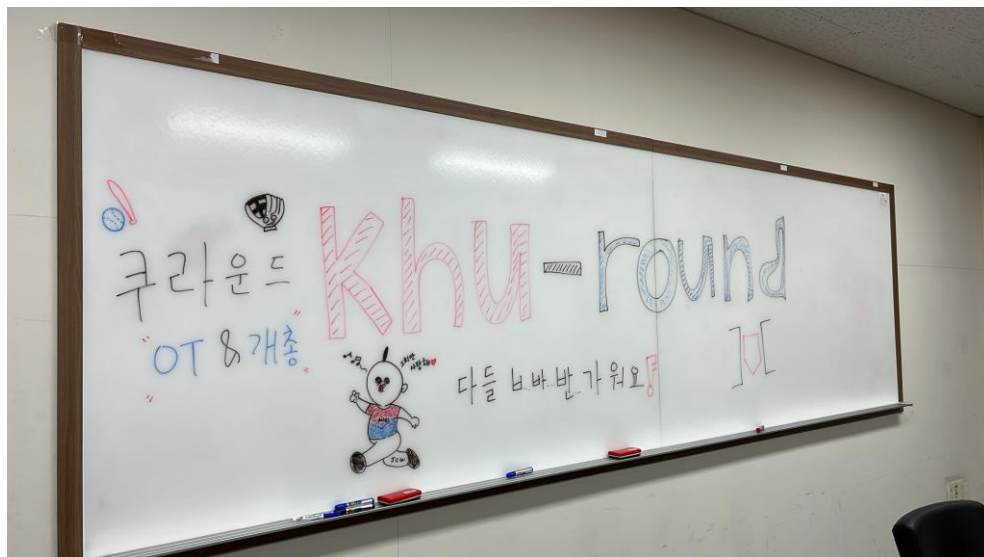 쿠라운드
Khu-round
"OT & 개총"
다들 ㅂ..바..반..가워요!
JCW